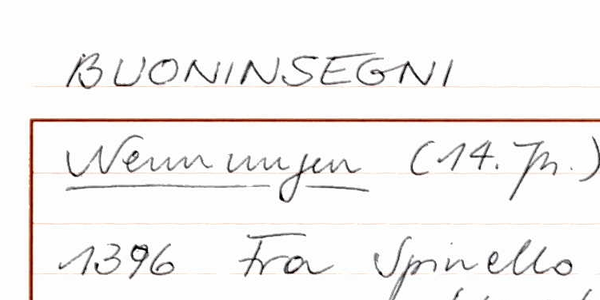 BUONINSEGNI
Nennungen (14. Jh.)
1396 Fra Spinello